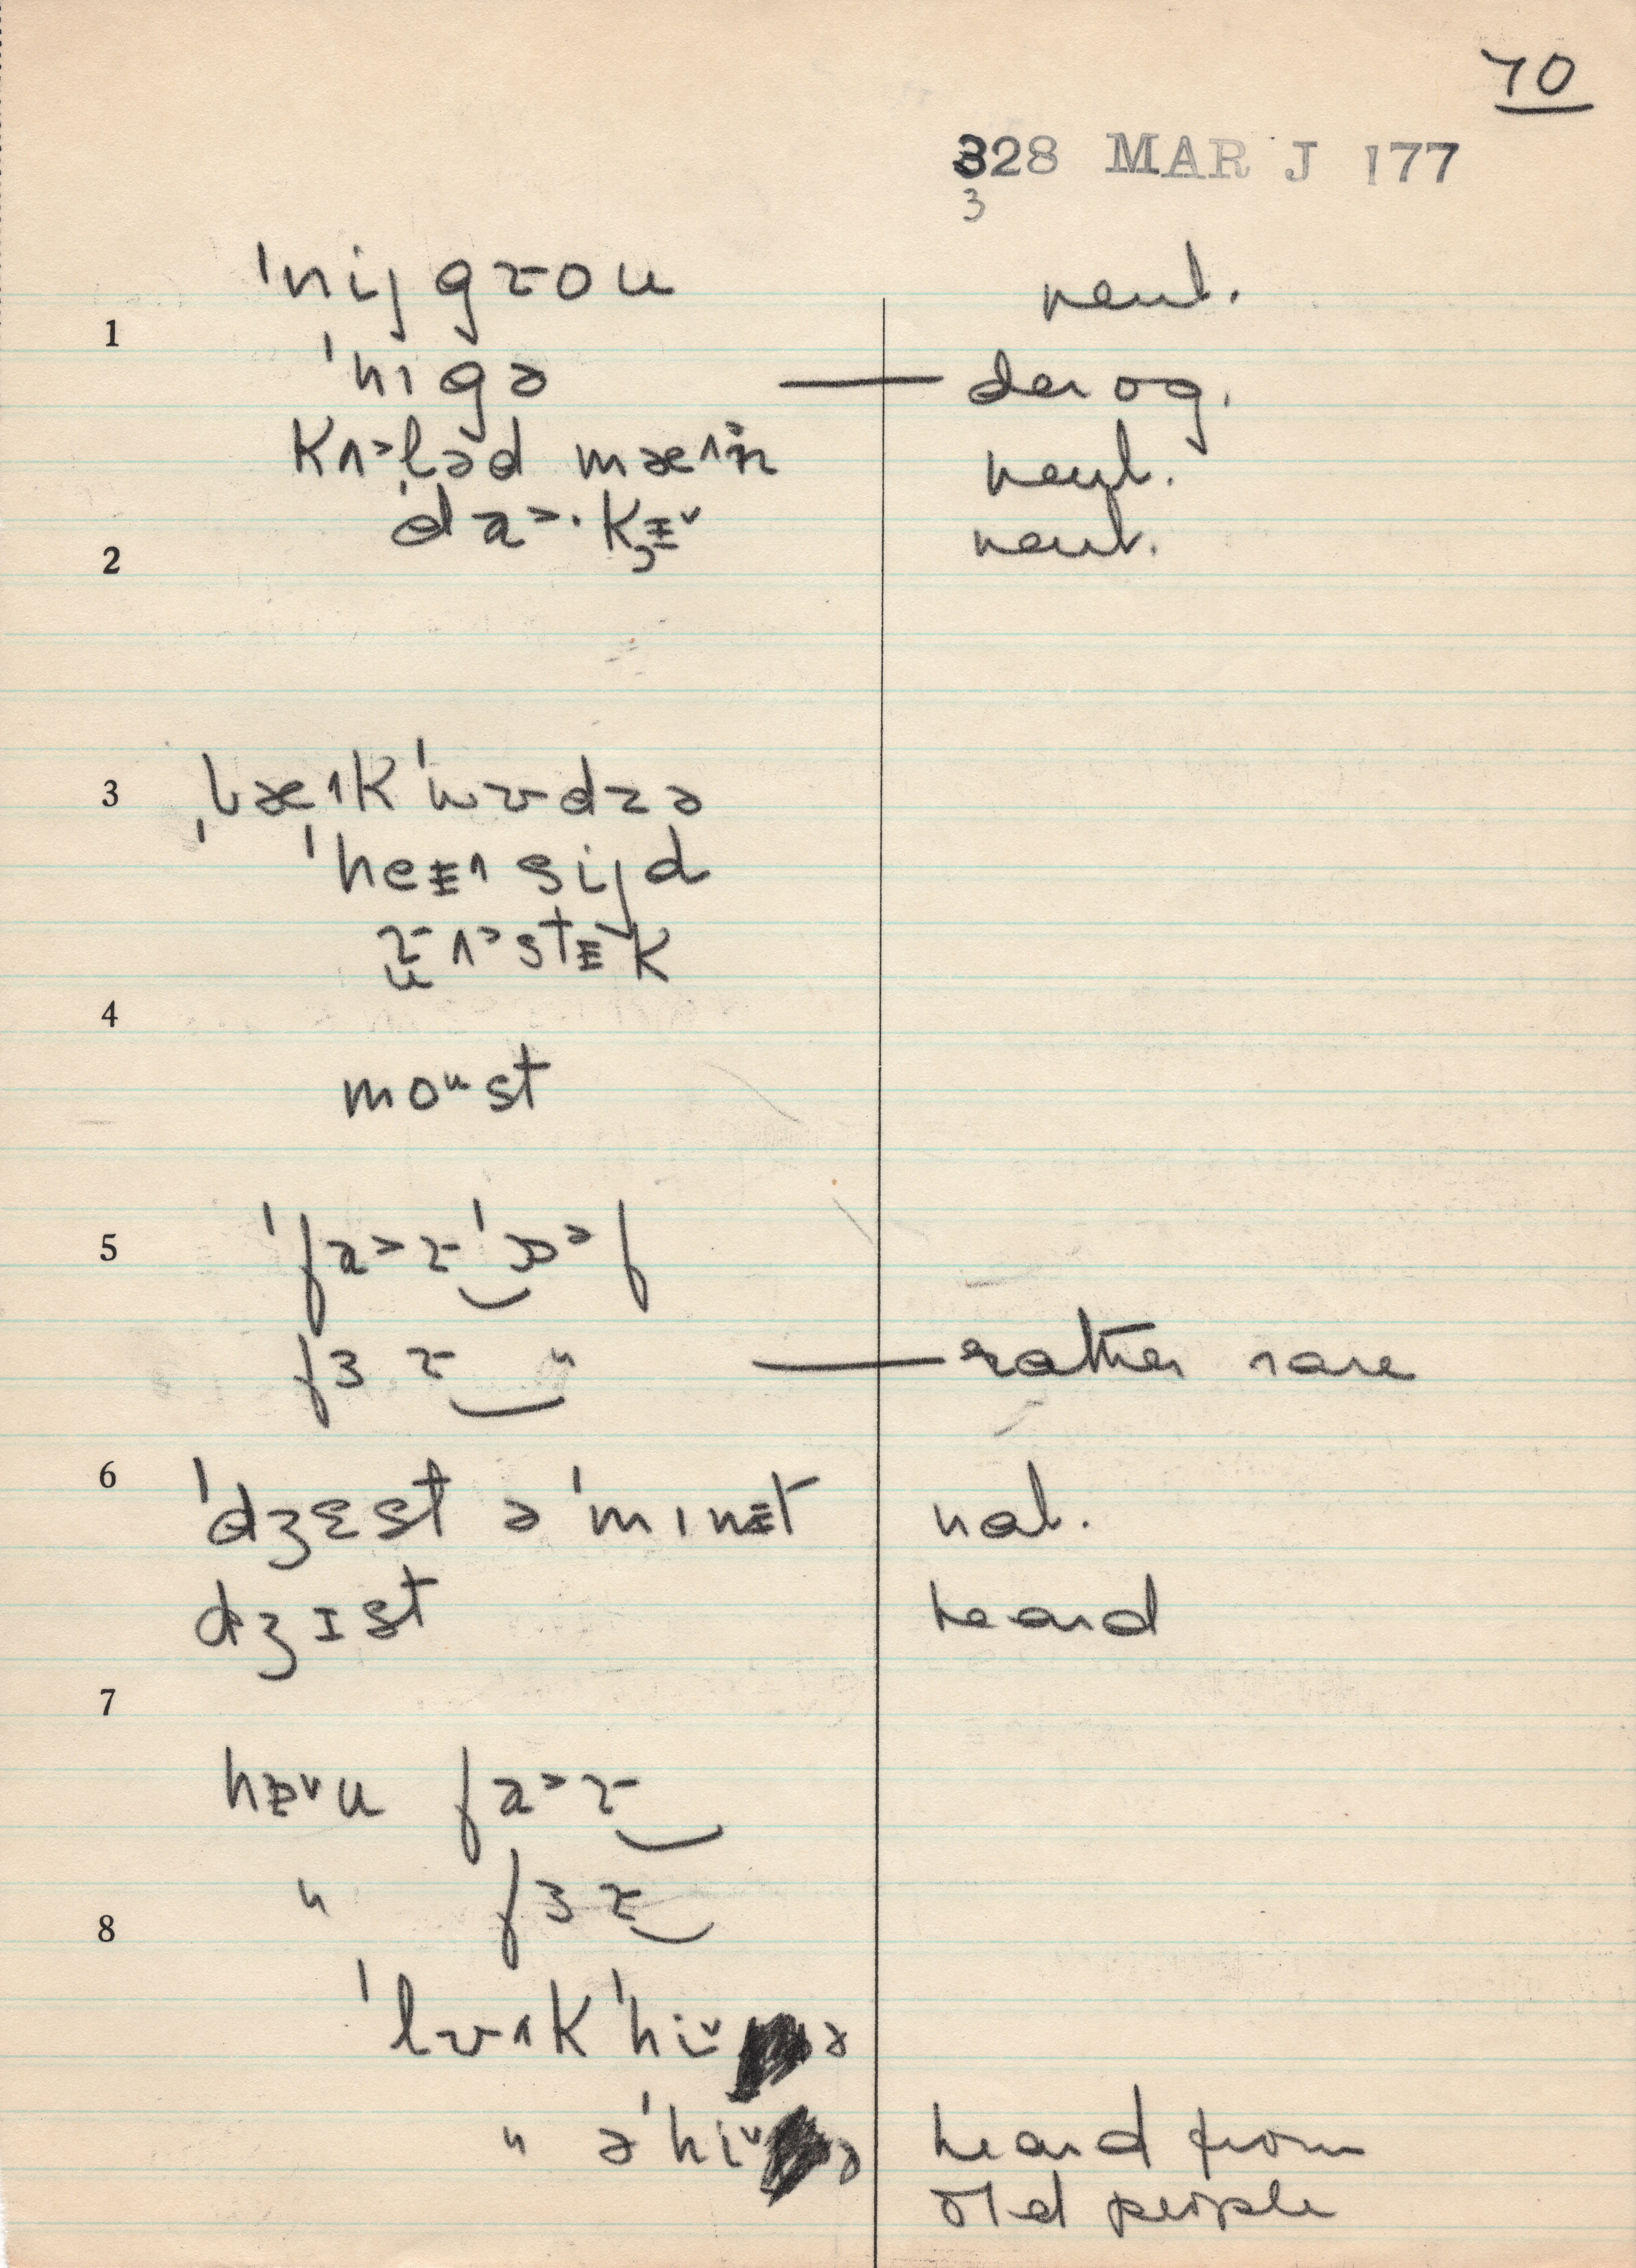 70
328 MAR J 177
3
ˈnijgɹou neut.
1
ˈnɪgə — derog.
kʌ˃ləd mæ^ən neut.
ˈda˃·kᵻ˅ neut.
2
3 ˌbæ^kˈwʊdzə
ˈheᵻ^sijd
ɹʌ˃stᵻk
4
moᵘst
5 ˈfa˃ɹˈɔᵊf
fɜɹ " — rather rare
6 ˈdʒɛst əˈmɪnᵻt nat.
dʒɪst heard
7
hᵻ˅u fa˃ɹ
" fɜɹ
8
ˈlʊ^kˈhi˅ə
" əˈhi˅ə heard from
old people